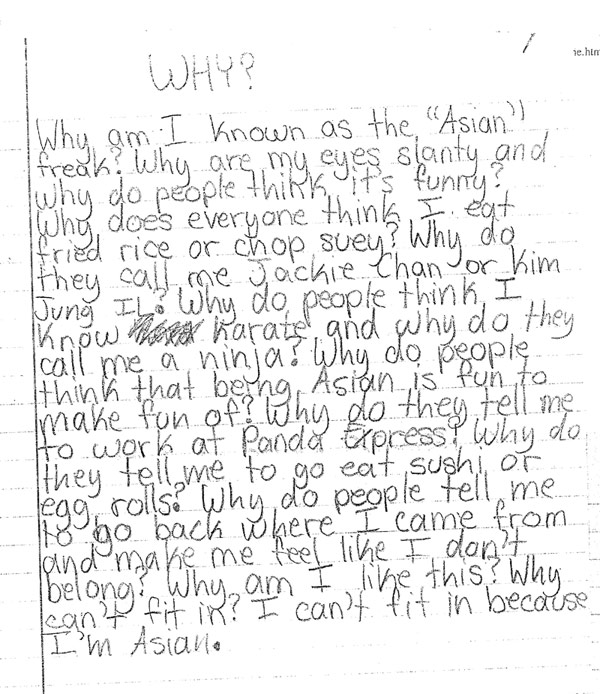 1
ne.htm
WHY?
Why am I known as the "Asian"
freak? Why are my eyes slanty and
why do people think it's funny?
Why does everyone think I eat
fried rice or chop suey? Why do
they call me Jackie Chan or Kim
Jung IL? Why do people think I
know karate and why do they
call me a ninja? Why do people
think that being Asian is fun to
make fun of? Why do they tell me
to work at Panda Express? Why do
they tell me to go eat sushi or
egg rolls? Why do people tell me
to go back where I came from
and make me feel like I don't
belong? Why am I like this? Why
can't fit in? I can't fit in because
I'm Asian.